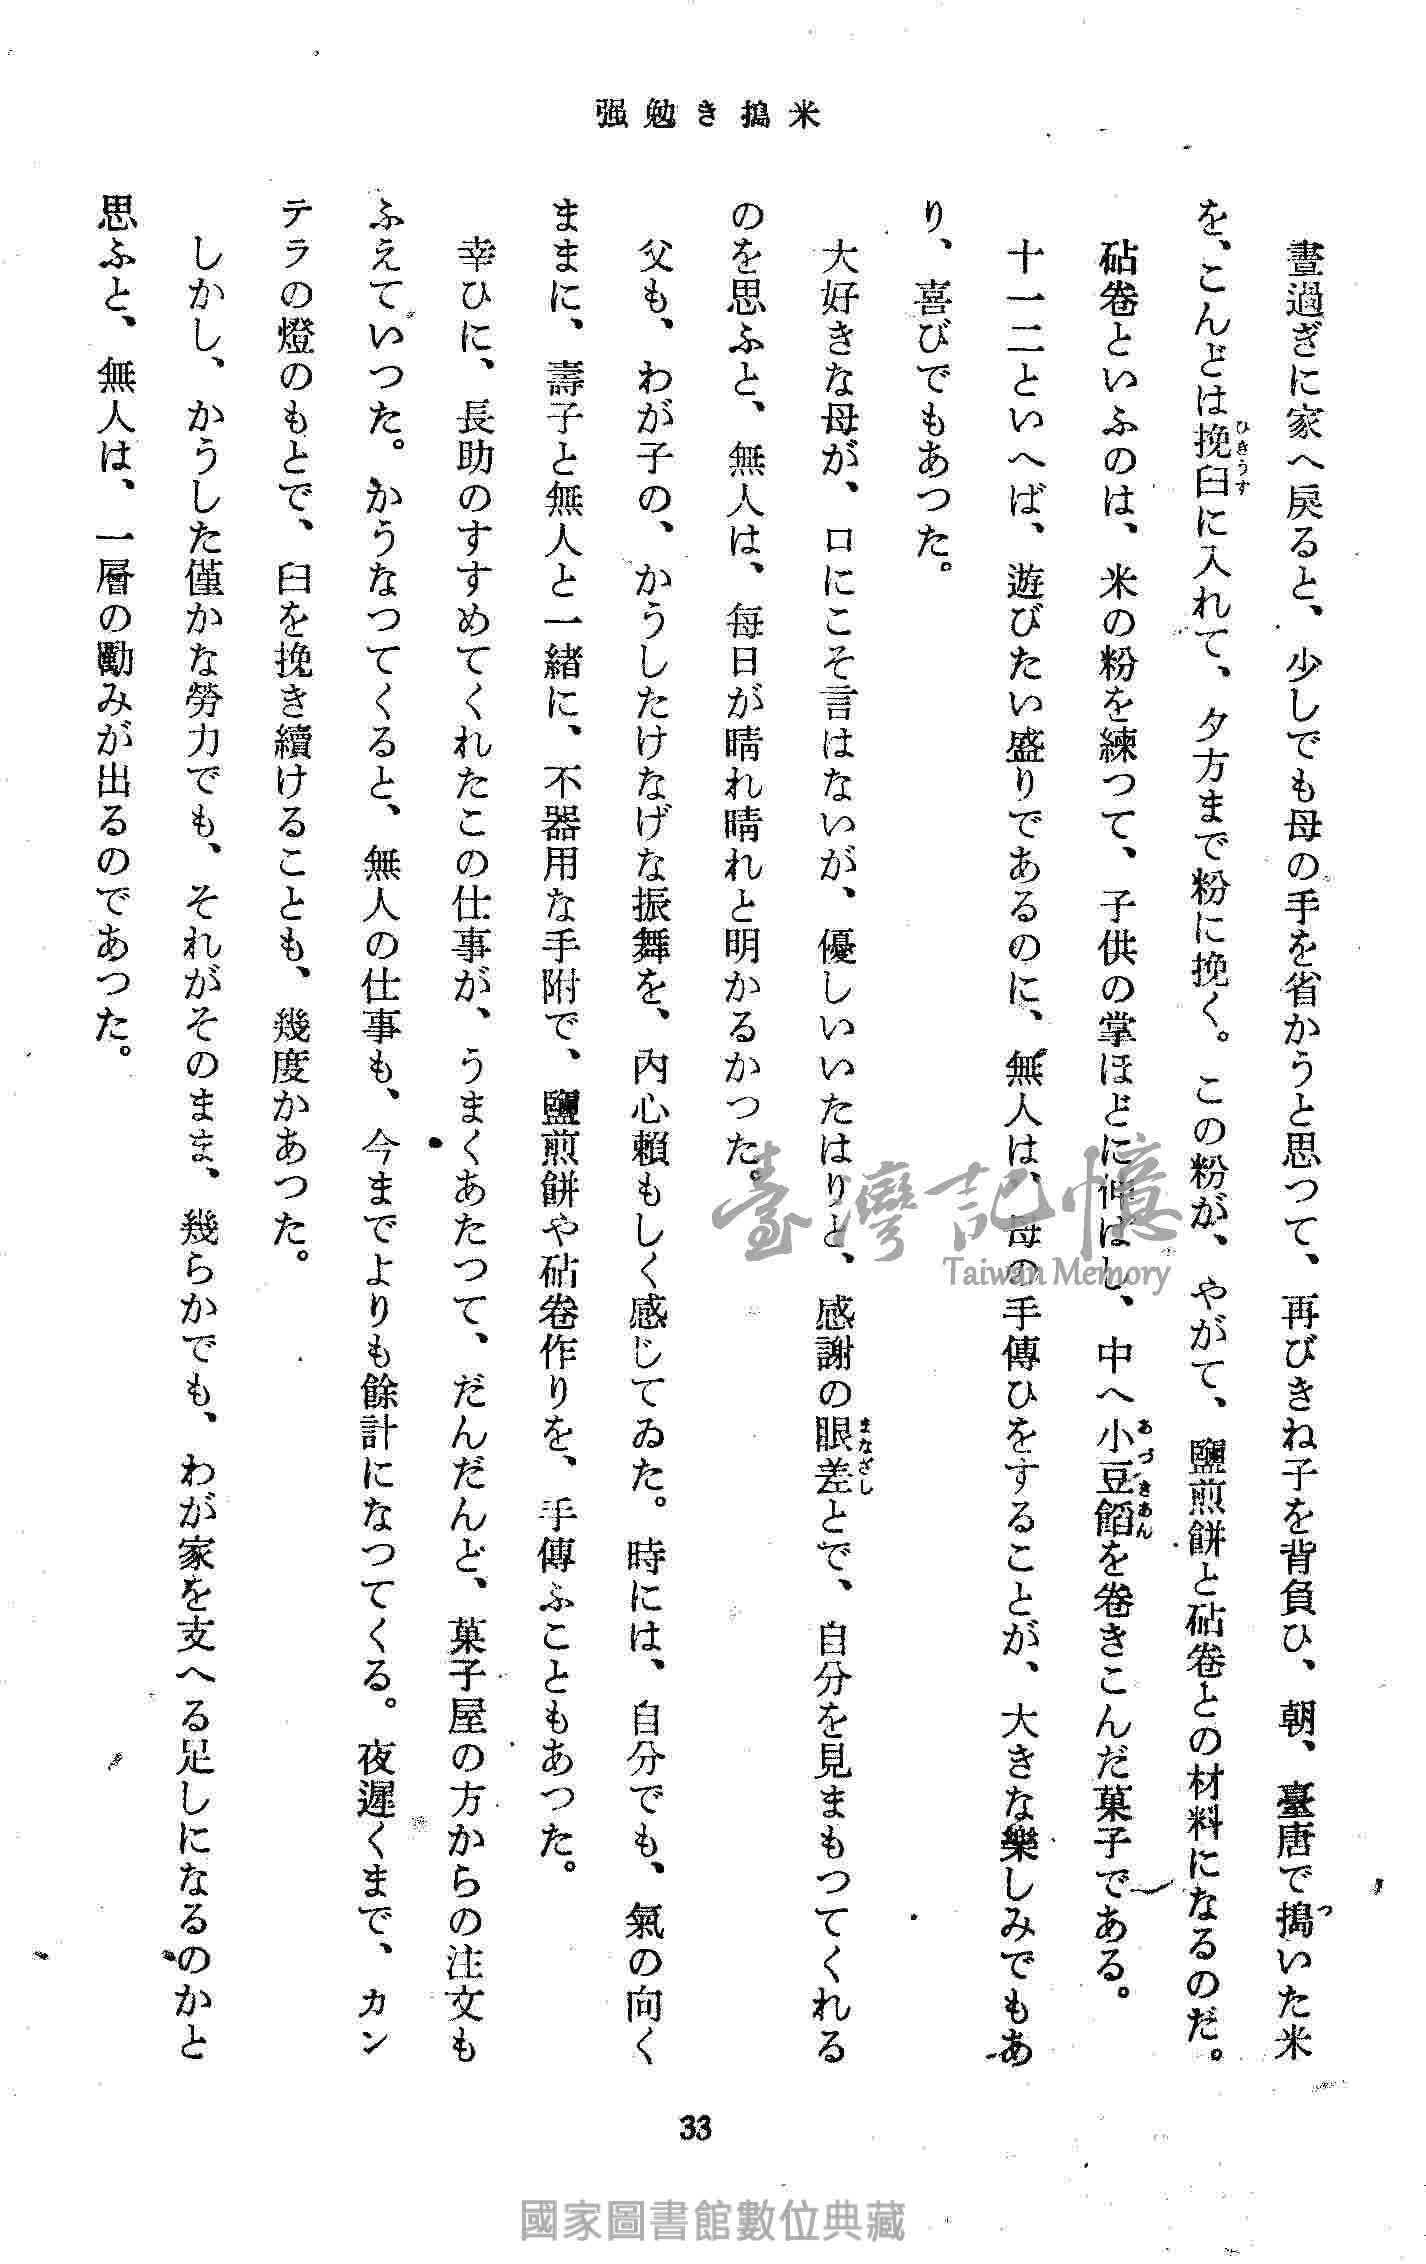 米搗き勉强
晝過ぎに家へ戻ると、少しでも母の手を省かうと思つて、再びきね子を背負ひ、朝、臺唐で搗いた米
を、こんどは挽臼に入れて、夕方まで粉に挽く。この粉が、やがて、鹽煎餅と砧卷との材料になるのだ。
砧卷といふのは、米の粉を練つて、子供の掌ほどに伸ばし、中へ小豆餡を卷きこんだ菓子である。
十一二といへば、遊びたい盛りであるのに、無人は、母の手傳ひをすることが、大きな樂しみでもあ
り、喜びでもあつた。
大好きな母が、口にこそ言はないが、優しいいたはりと、感謝の眼差とで、自分を見まもつてくれる
のを思ふと、無人は、每日が晴れ晴れと明かるかつた。
父も、わが子の、かうしたけなげな振舞を、內心賴もしく感じてゐた。時には、自分でも、氣の向く
ままに、壽子と無人と一緒に、不器用な手附で、鹽煎餅や砧卷作りを、手傳ふこともあつた。
幸ひに、長助のすすめてくれたこの仕事が、うまくあたつて、だんだんと、菓子屋の方からの注文も
ふえていつた。かうなつてくると、無人の仕事も、今までよりも餘計になつてくる。夜遲くまで、カン
テラの燈のもとで、臼を挽き續けることも、幾度かあつた。
しかし、かうした僅かな勞力でも、それがそのまま、幾らかでも、わが家を支へる足しになるのかと
思ふと、無人は、一層の勵みが出るのであつた。
ひきうす
あづきあん
まなざし
つ
臺灣記憶
Taiwan Memory
33
國家圖書館數位典藏